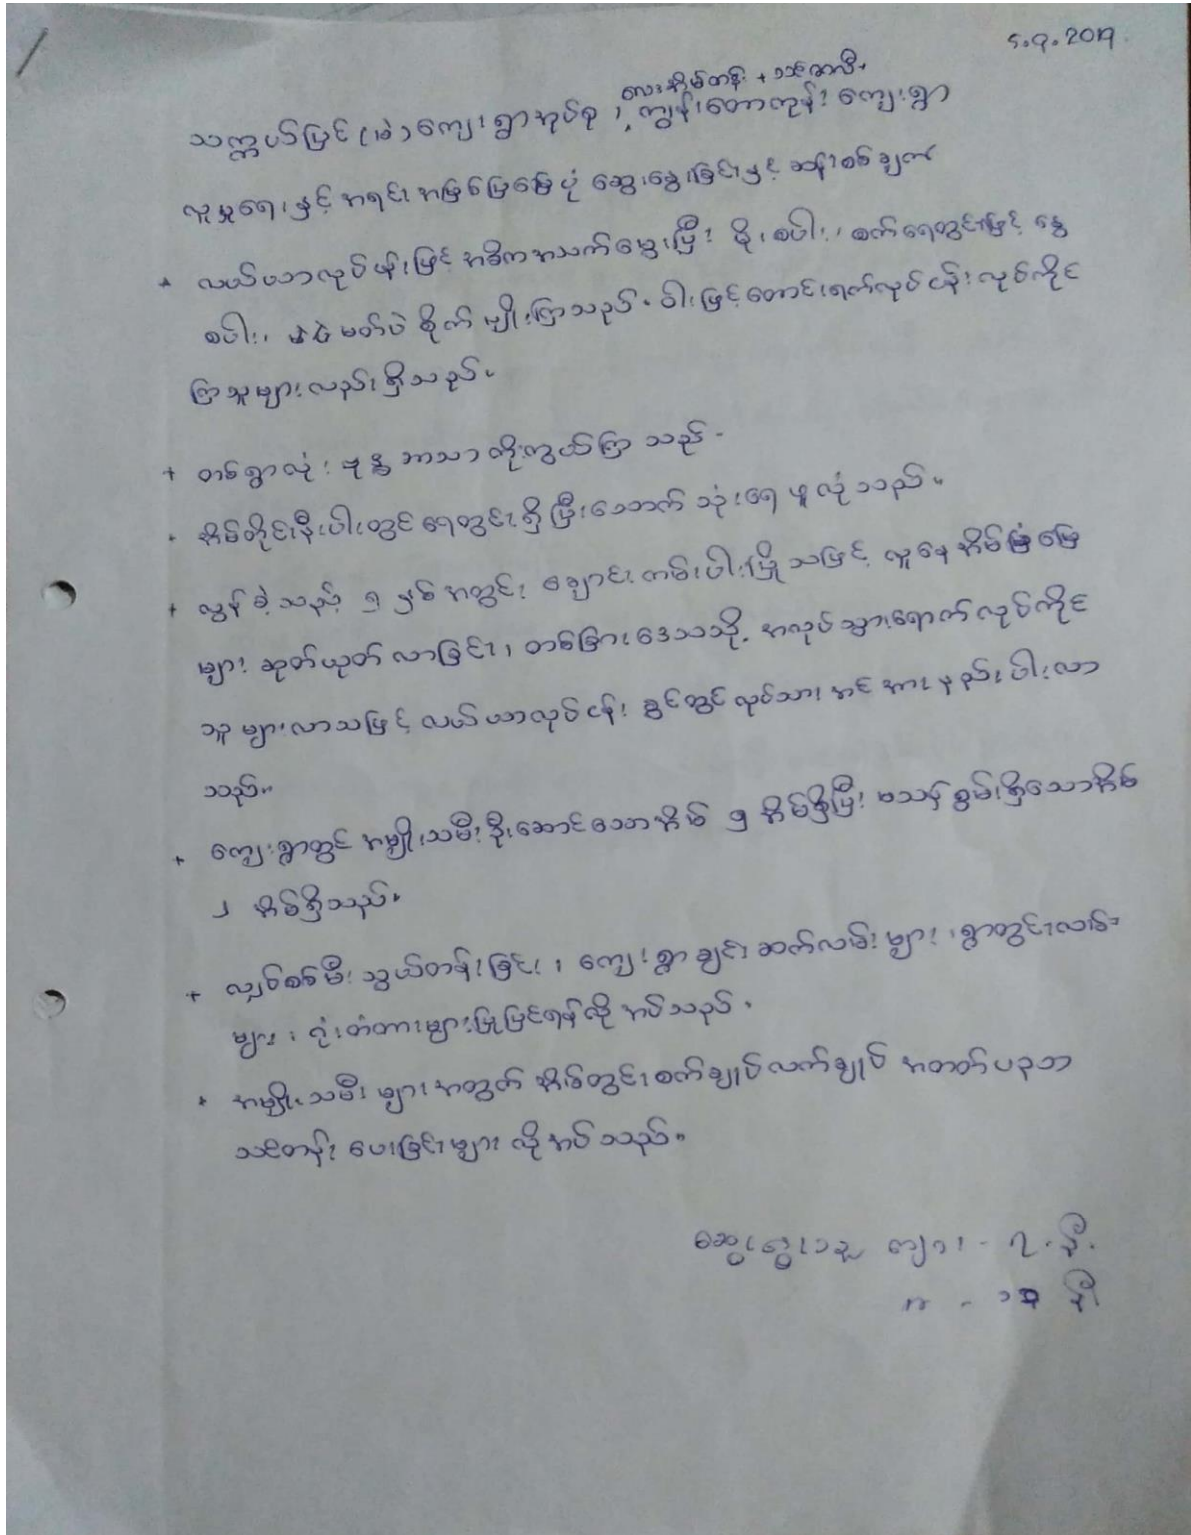 ၄.၇.2017
လေးအိမ်တန်း + သင်္ဘောလီ
သက္ကယ်ပြင် (ခ) ကျေးရွာအုပ်စု ၊ ကျွန်းတောကုန်း ကျေးရွာ
လူမှုရေးနှင့် အရင်းအမြစ်ပြမြေပုံ ဆွေးနွေးခြင်းနှင့် ဆန်းစစ်ချက်
+ လယ်ယာလုပ်ငန်းဖြင့် အဓိကအသက်မွေးပြီး မိုးစပါး ၊ စက်ရေတွင်းဖြင့် နွေ
စပါး ၊ မတ်ပဲ စိုက်မျိုးကြသည်။ ဝါးဖြင့်တောင်းရက်လုပ်ငန်း လုပ်ကိုင်
ကြသူများလည်းရှိသည်။
+ တစ်ရွာလုံး ဗုဒ္ဓဘာသာကိုးကွယ်ကြသည်။
+ အိမ်တိုင်းနီးပါးတွင် ရေတွင်းရှိပြီး သောက်သုံးရေ ဖူလုံသည်။
+ လွန်ခဲ့သည့် ၅ နှစ်အတွင်း ချောင်းကမ်းပါးပြိုသဖြင့် လူနေအိမ်ခြံမြေ
များ ဆုတ်ယုတ်လာခြင်း ၊ တစ်ခြားဒေသသို့ အလုပ်သွားရောက်လုပ်ကိုင်
သူများလာသဖြင့် လယ်ယာလုပ်ငန်းခွင်တွင် လုပ်သားအင်အားနည်းပါးလာ
သည်။
+ ကျေးရွာတွင် အမျိုးသမီးဦးဆောင်သောအိမ် ၅ အိမ်ရှိပြီး မသန်စွမ်းရှိသောအိမ်
၂ အိမ်ရှိသည်။
+ လျှပ်စစ်မီး သွယ်တန်းခြင်း ၊ ကျေးရွာချင်းဆက်လမ်းများ ၊ ရွာတွင်းလမ်း
များ ၊ ဂုံးတံတားများပြုပြင်ရန်လိုအပ်သည်။
+ အမျိုးသမီးများအတွက် အိမ်တွင်းစက်ချုပ်လက်ချုပ် အတတ်ပညာ
သင်တန်းပေးခြင်းများ လိုအပ်သည်။
ဆွေးနွေးသူ ကျား - ၇ ဦး
မ - ၁၃ ဦး